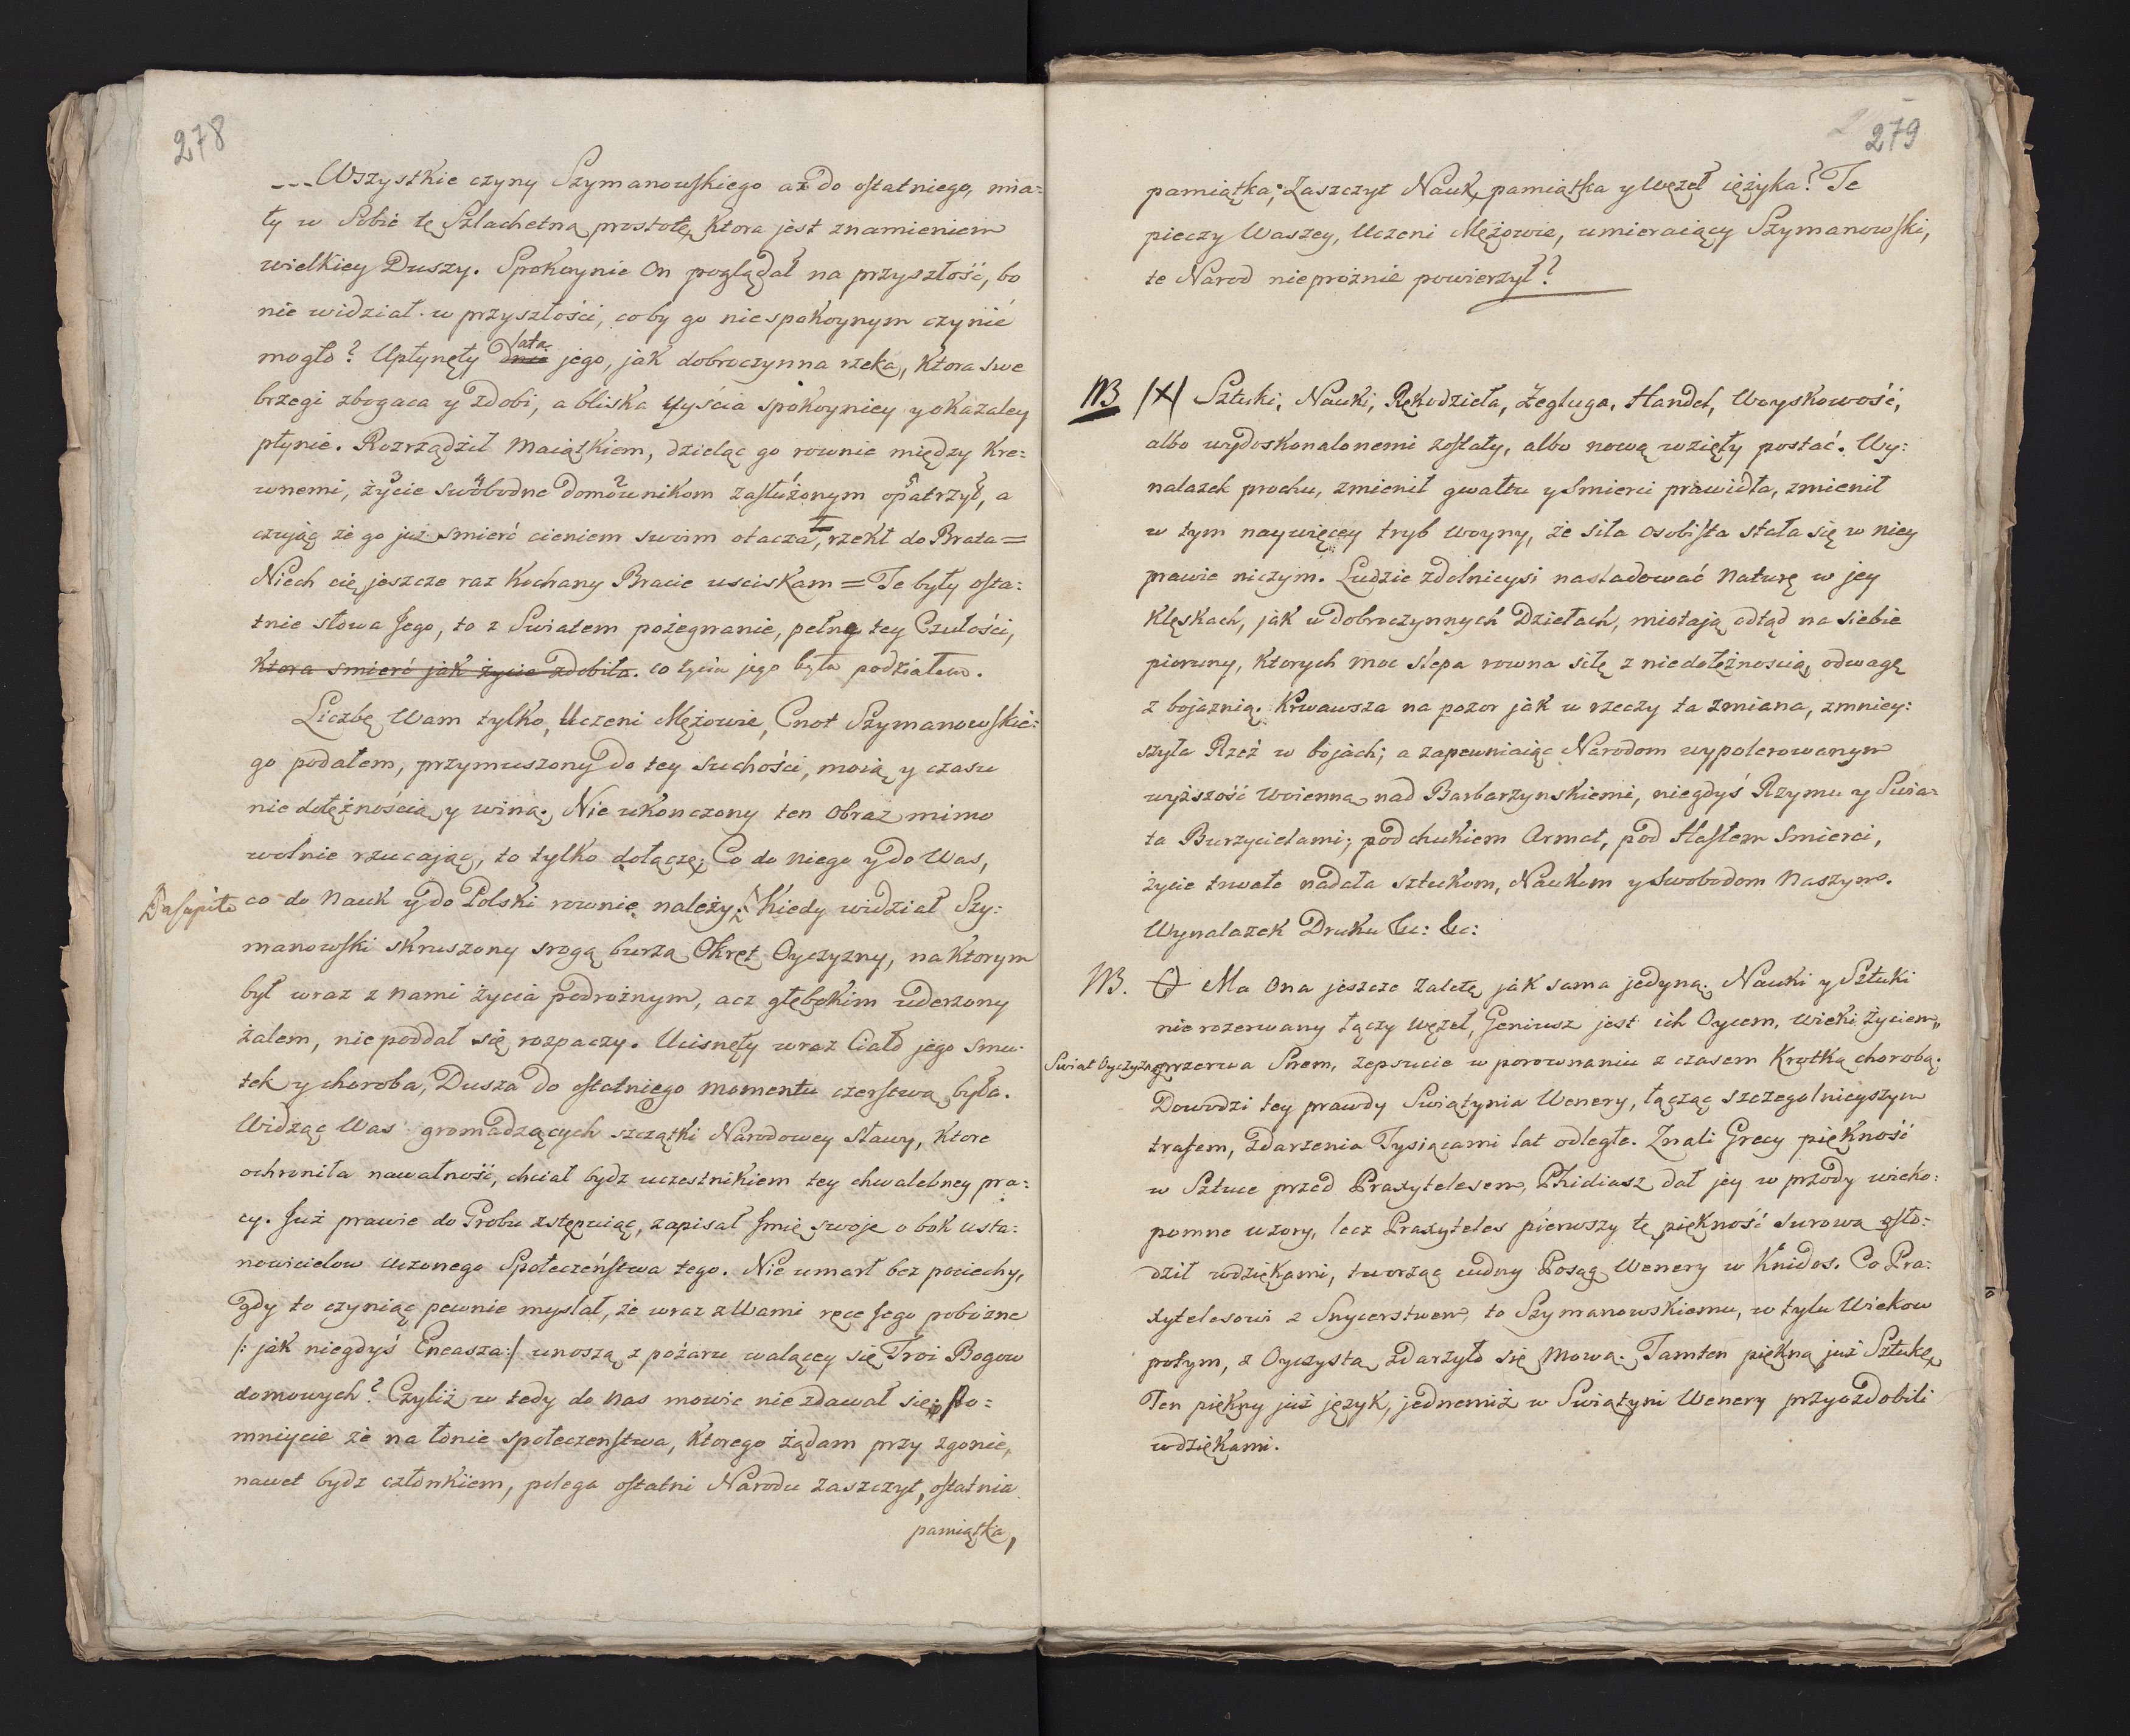 278
---Wszystkie czyny Szymanowskiego aż do ostatniego, mia:
ły w Sobie tę Szlachetną prostotę, Ktora jest znamieniem
wielkiey Duszy. Spokoynie On poglądał na przyszłość, bo
nie widział w przyszłości, coby go niespokoynym czynić
mogło? Upłynęły dnie lata jego, jak dobroczynna rzeka, Ktora swe
brzegi zbogaca y zdobi, a bliska uyścia spokoyniey y okazaley
płynie. Rozrządził Maiątkiem, dzieląc go rownie między Kre:
wnemi, życie swobodne domownikom zasłużonym opatrzył, a
czując że go już smierć cieniem swoim otacza, rzekł do Brata =
Niech cię jeszcze raz Kochany Bracie usciskam = Te były osta:
tnie słowa Jego, to z Swiatem pożegnanie, pełne tey Czułości,
Ktora smierć jak życie zdobiła. co życia jego była podziałem.
Liczbę Wam tylko, Uczeni Mężowie, Cnot Szymanowskie:
go podałem, przymuszony do tey suchości, moią y czasu
niedołężnością y winą. Nie ukonczony ten Obraz mimo
wolnie rzucając, to tylko dołączę; Co do niego y do Was,
co do Nauk y do Polski rownie należy. Kiedy widział Szy:
manowski skruszony srogą burzą Okręt Oyczyzny, na Ktorym
był wraz z nami życia podrożnym, acz głębokim uderzony
żalem, nie poddał się rozpaczy. Ucisnęły wraz Ciało jego smu:
tek y choroba, Dusza do ostatniego momentu czerstwą była.
Widząc Was gromadzących szczątki Narodowey Sławy, Ktore
ochroniła nawałność, chciał bydz uczestnikiem tey chwalebney pra:
cy. Już prawie do Grobu zstępuiąc, zapisał Jmię swoje o bok usta:
nowicielow Uczonego Społeczeństwa tego. Nie umarł bez pociechy,
gdy to czyniąc pewnie myslał, że wraz z Wami ręce Jego pobożne
/: jak niegdyś Eneasza:/ unoszą z pożaru walącey się Troi Bogow
domowych? Czyliż w tedy do Nas mowić nie zdawał się; Po:
mniycie że na łonie społeczenstwa, Ktorego żądam przy zgonie,
nawet bydz członkiem, polega ostatni Narodu Zaszczyt, ostatnia
pamiątka,
279
pamiątka; Zaszczyt Nauk, pamiątka y Węzeł ięzyka? Te
pieczy Waszey, Uczeni Mężowie, umieraiący Szymanowski,
te Narod nieprożnie powierzył?
NB (X) Sztuki, Nauki, Rękodzieła, Żegluga, Handel, Woyskowość,
albo wydoskonalonemi zostały, albo nową wzięły postać. Wy:
nalazek prochu, zmienił gwałtu y Smierci prawidła, zmienił
w tym naywięcey tryb woyny, że siła osobista stała się w niey
prawie niczym. Ludzie zdolnieysi nasladować Naturę w jey
Klęskach, jak w dobroczynnych Dziełach, miotają odtąd na siebie
pioruny, Ktorych moc slepa rowna siłę z niedołężnoscią, odwagę
z bojaznią. Krwawsza na pozor jak w rzeczy ta zmiana, zmniey:
szyła Rzeź w bojach; a zapewniaiąc Narodom wypolerowanym
wyższość woienną nad Barbarzynskiemi, niegdyś Rzymu y Swia:
ta Burzycielami; pod chukiem Armat, pod Hasłem Smierci,
życie trwałe nadała sztukom, Naukom y Swobodom Naszym.
Wynalazek Druku &c: &c:
NB. Ma Ona jeszcze Zaletę jak sama jedyną. Nauki y Sztuki
nie rozerwany łączy węzeł, Geniusz jest ich Oycem, Wieki życiem,
Swiat Oyczyzną przerwa Snem, zepsucie w porownaniu z czasem Krotką chorobą.
Dowodzi tey prawdy Swiątynia Wenery, łącząc szczegolnieyszym
trafem, zdarzenia Tysiącami lat odległe. Znali Grecy piękność
w Sztuce przed Praxytelesem, Phidiasz dał jey w przody wieko:
pomne wzory, lecz Praxyteles pierwszy tę piękność surową osło:
dził wdziękami, tworząc cudny Posąg Wenery w Knidos. Co Pra:
xytelesowi z Snycerstwem, to Szymanowskiemu, w tylu Wiekow
potym, z Oyczystą zdarzyło się mową. Tamten piękną już Sztukę,
Ten piękny już język, jednemiż w Swiątyni Wenery przyozdobili
wdziękami.